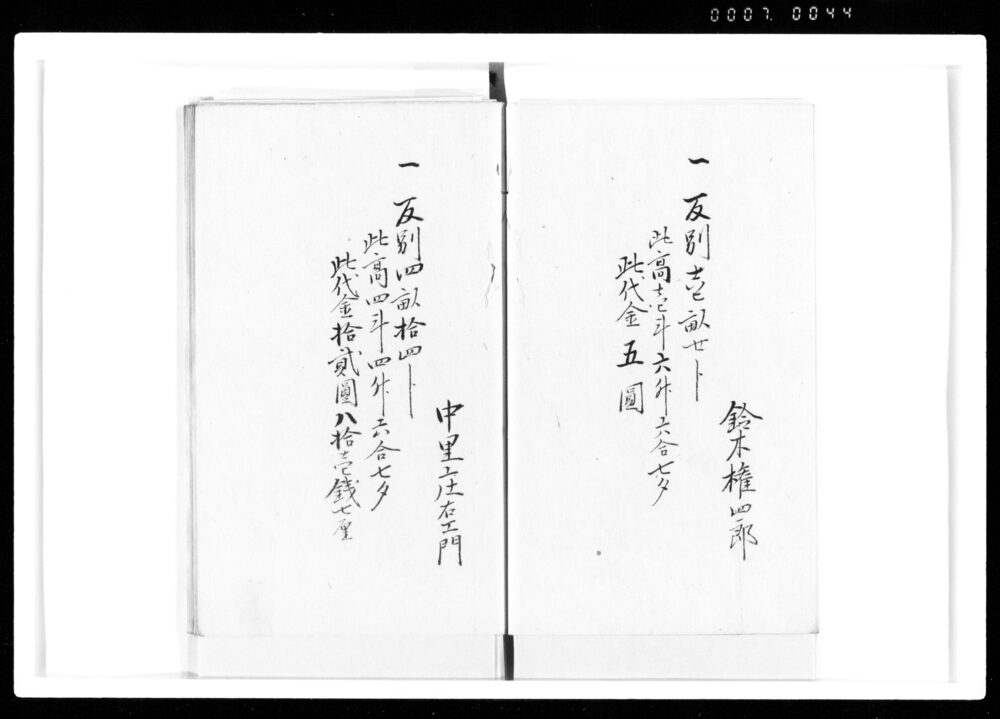 0007. 0044
鈴木権四郎
一 反別壱畝廿ト
此高壱斗六升六合七夕
此代金五圓
中里上庄右エ門
一 反別四畝拾四ト
此高四斗四升六合七夕
此代金拾貳圓八拾壱銭七厘